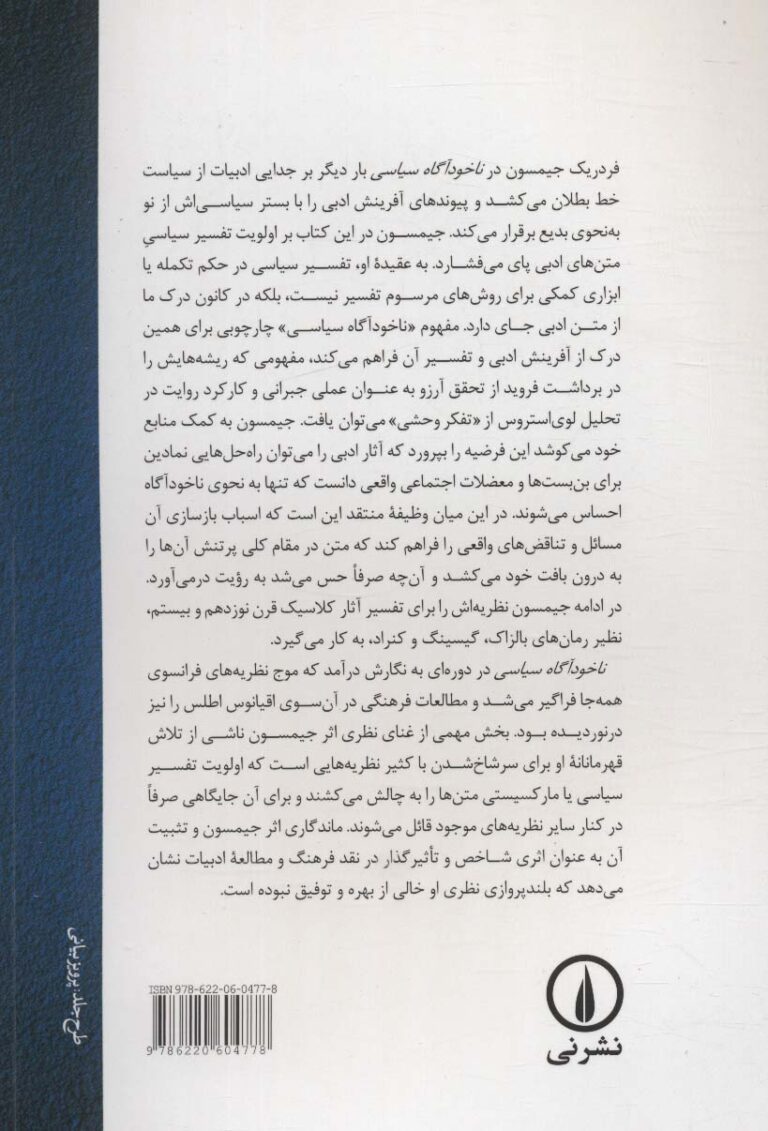 فردریک جیمسون در ناخودآگاه سیاسی بار دیگر بر جدایی ادبیات از سیاست
خط بطلان می‌کشد و پیوندهای آفرینش ادبی را با بستر سیاسی‌اش از نو
به‌نحوی بدیع برقرار می‌کند. جیمسون در این کتاب بر اولویت تفسیر سیاسیِ
متن‌های ادبی پای می‌فشارد. به عقیدهٔ او، تفسیر سیاسی در حکم تکمله یا
ابزاری کمکی برای روش‌های مرسوم تفسیر نیست، بلکه در کانون درک ما
از متن ادبی جای دارد. مفهوم «ناخودآگاه سیاسی» چارچوبی برای همین
درک از آفرینش ادبی و تفسیر آن فراهم می‌کند، مفهومی که ریشه‌هایش را
در برداشت فروید از تحقق آرزو به عنوان عملی جبرانی و کارکرد روایت در
تحلیل لوی‌استروس از «تفکر وحشی» می‌توان یافت. جیمسون به کمک منابع
خود می‌کوشد این فرضیه را بپرورد که آثار ادبی را می‌توان راه‌حل‌هایی نمادین
برای بن‌بست‌ها و معضلات اجتماعی واقعی دانست که تنها به نحوی ناخودآگاه
احساس می‌شوند. در این میان وظیفهٔ منتقد این است که اسباب بازسازی آن
مسائل و تناقض‌های واقعی را فراهم کند که متن در مقام کلی پرتنش آن‌ها را
به درون بافت خود می‌کشد و آن‌چه صرفاً حس می‌شد به رؤیت درمی‌آورد.
در ادامه جیمسون نظریه‌اش را برای تفسیر آثار کلاسیک قرن نوزدهم و بیستم،
نظیر رمان‌های بالزاک، گیسینگ و کنراد، به کار می‌گیرد.
ناخودآگاه سیاسی در دوره‌ای به نگارش درآمد که موج نظریه‌های فرانسوی
همه‌جا فراگیر می‌شد و مطالعات فرهنگی در آن‌سوی اقیانوس اطلس را نیز
درنوردیده بود. بخش مهمی از غنای نظری اثر جیمسون ناشی از تلاش
قهرمانانهٔ او برای سرشاخ‌شدن با کثیر نظریه‌هایی است که اولویت تفسیر
سیاسی یا مارکسیستی متن‌ها را به چالش می‌کشند و برای آن جایگاهی صرفاً
در کنار سایر نظریه‌های موجود قائل می‌شوند. ماندگاری اثر جیمسون و تثبیت
آن به عنوان اثری شاخص و تأثیرگذار در نقد فرهنگ و مطالعهٔ ادبیات نشان
می‌دهد که بلندپروازی نظری او خالی از بهره و توفیق نبوده است.
طرح جلد: پرویز بیانی
ISBN 978-622-06-0477-8
9 786220 604778
نشرنی